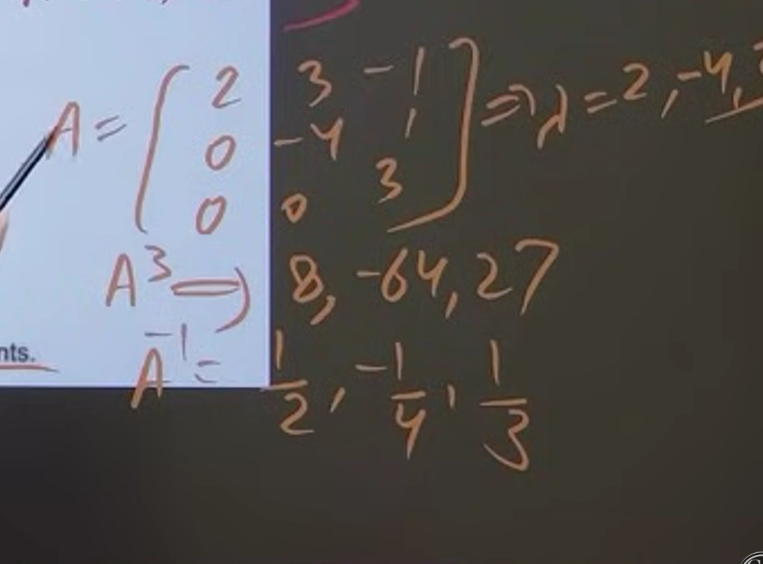 A = [ 2 3 -1
0 -4 1
0 0 3 ] => λ = 2, -4,
A³ => 8, -64, 27
A⁻¹ = 1/2, -1/4, 1/3
nts.